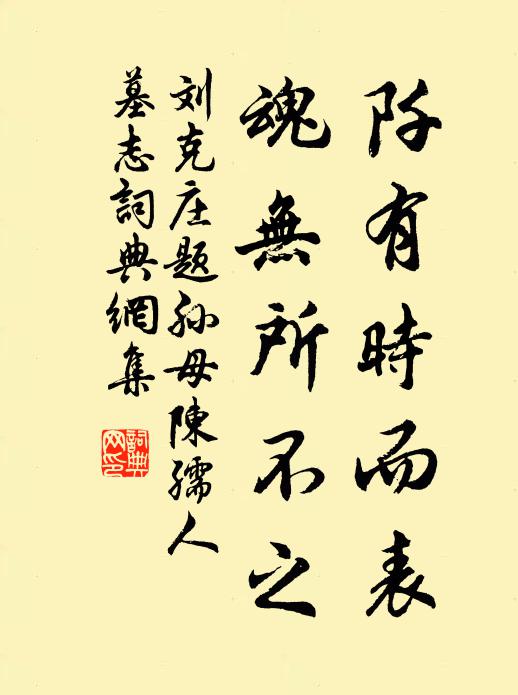 阡有時而表
魂無所不之
刘克庄题孙母陳孺人
墓志詞典網集
詞典网印